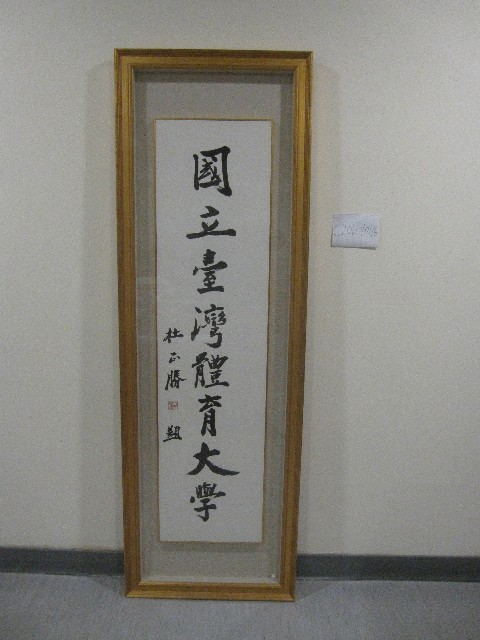 國立臺灣體育大學
杜正勝